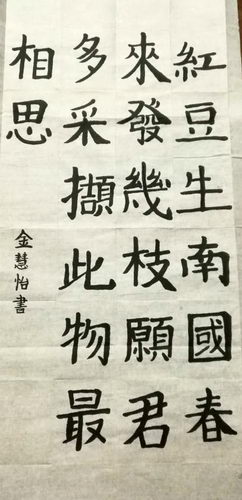 紅豆生南國春
來發幾枝願君
多采擷此物最
相思
金慧怡書